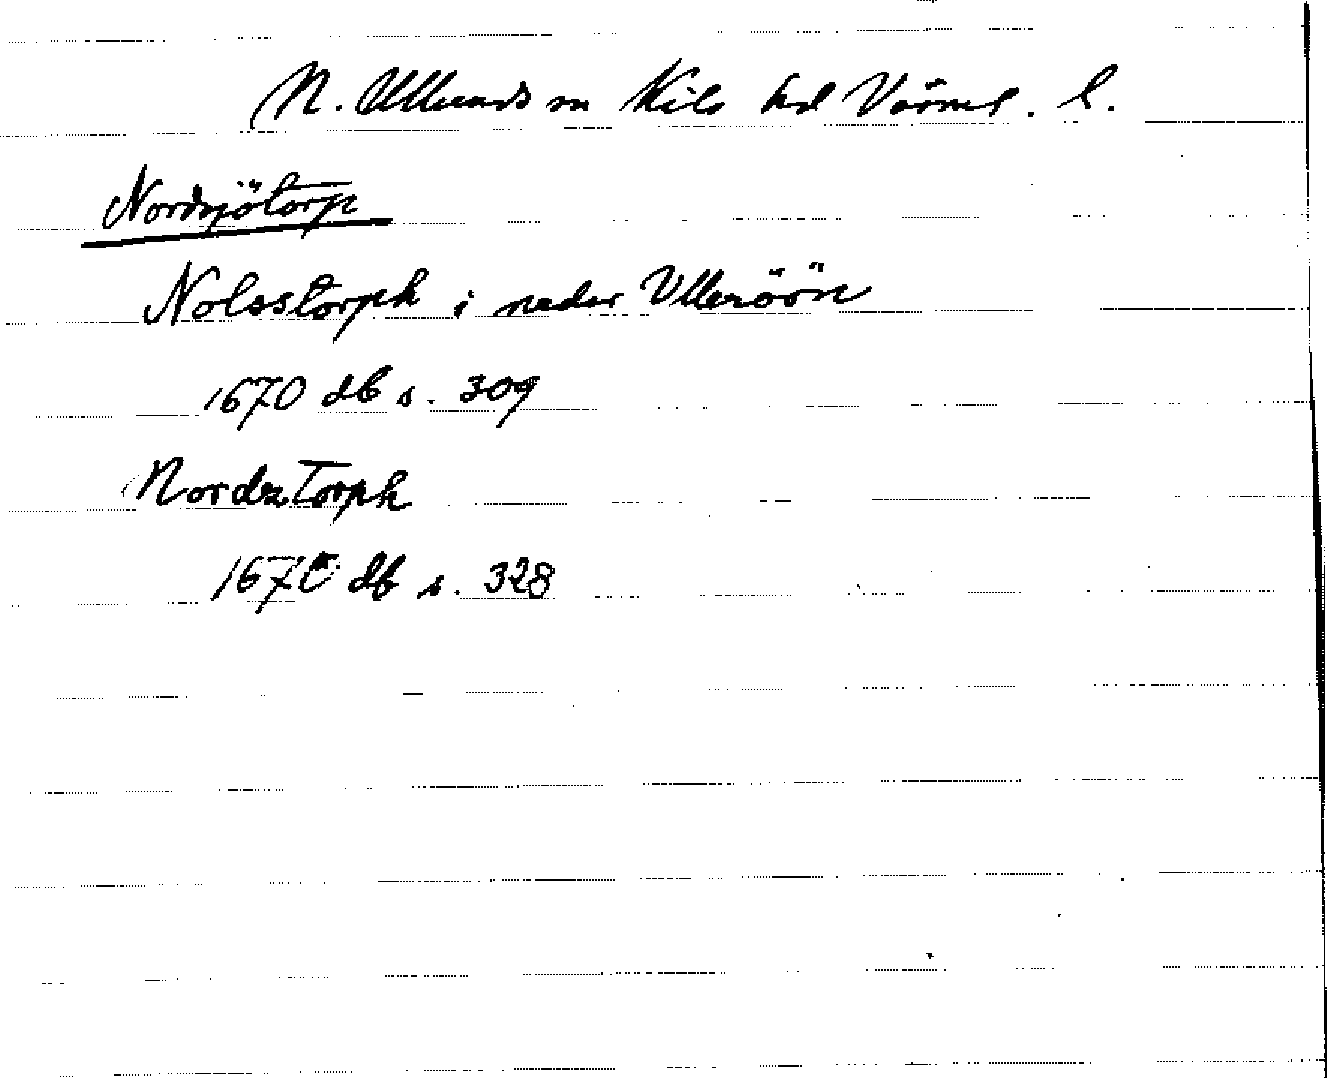 N. Ulleruds sn Kils hd Värml. l.
Nordsjötorp
Nolsstorph i neder Ulleröön
1670 db s. 309
Nordztorph
1670 db s. 328